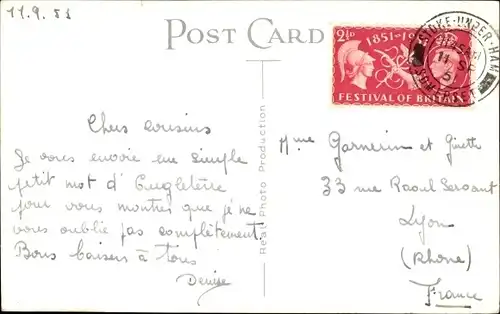 11.9.51
POST CARD
2½D 1851-1951
FESTIVAL OF BRITAIN
STOKE-UNDER-HAM
11 SE
51
SOMERSET
Chers cousins
Je vous envoie un simple
petit mot d'Angleterre
pour vous montrer que je ne
vous oublie pas complètement.
Bons baisers à tous
Denise
Real Photo Production
Mme Garnerin et Ginette
33 rue Raoul Servant
Lyon
(Rhone)
France